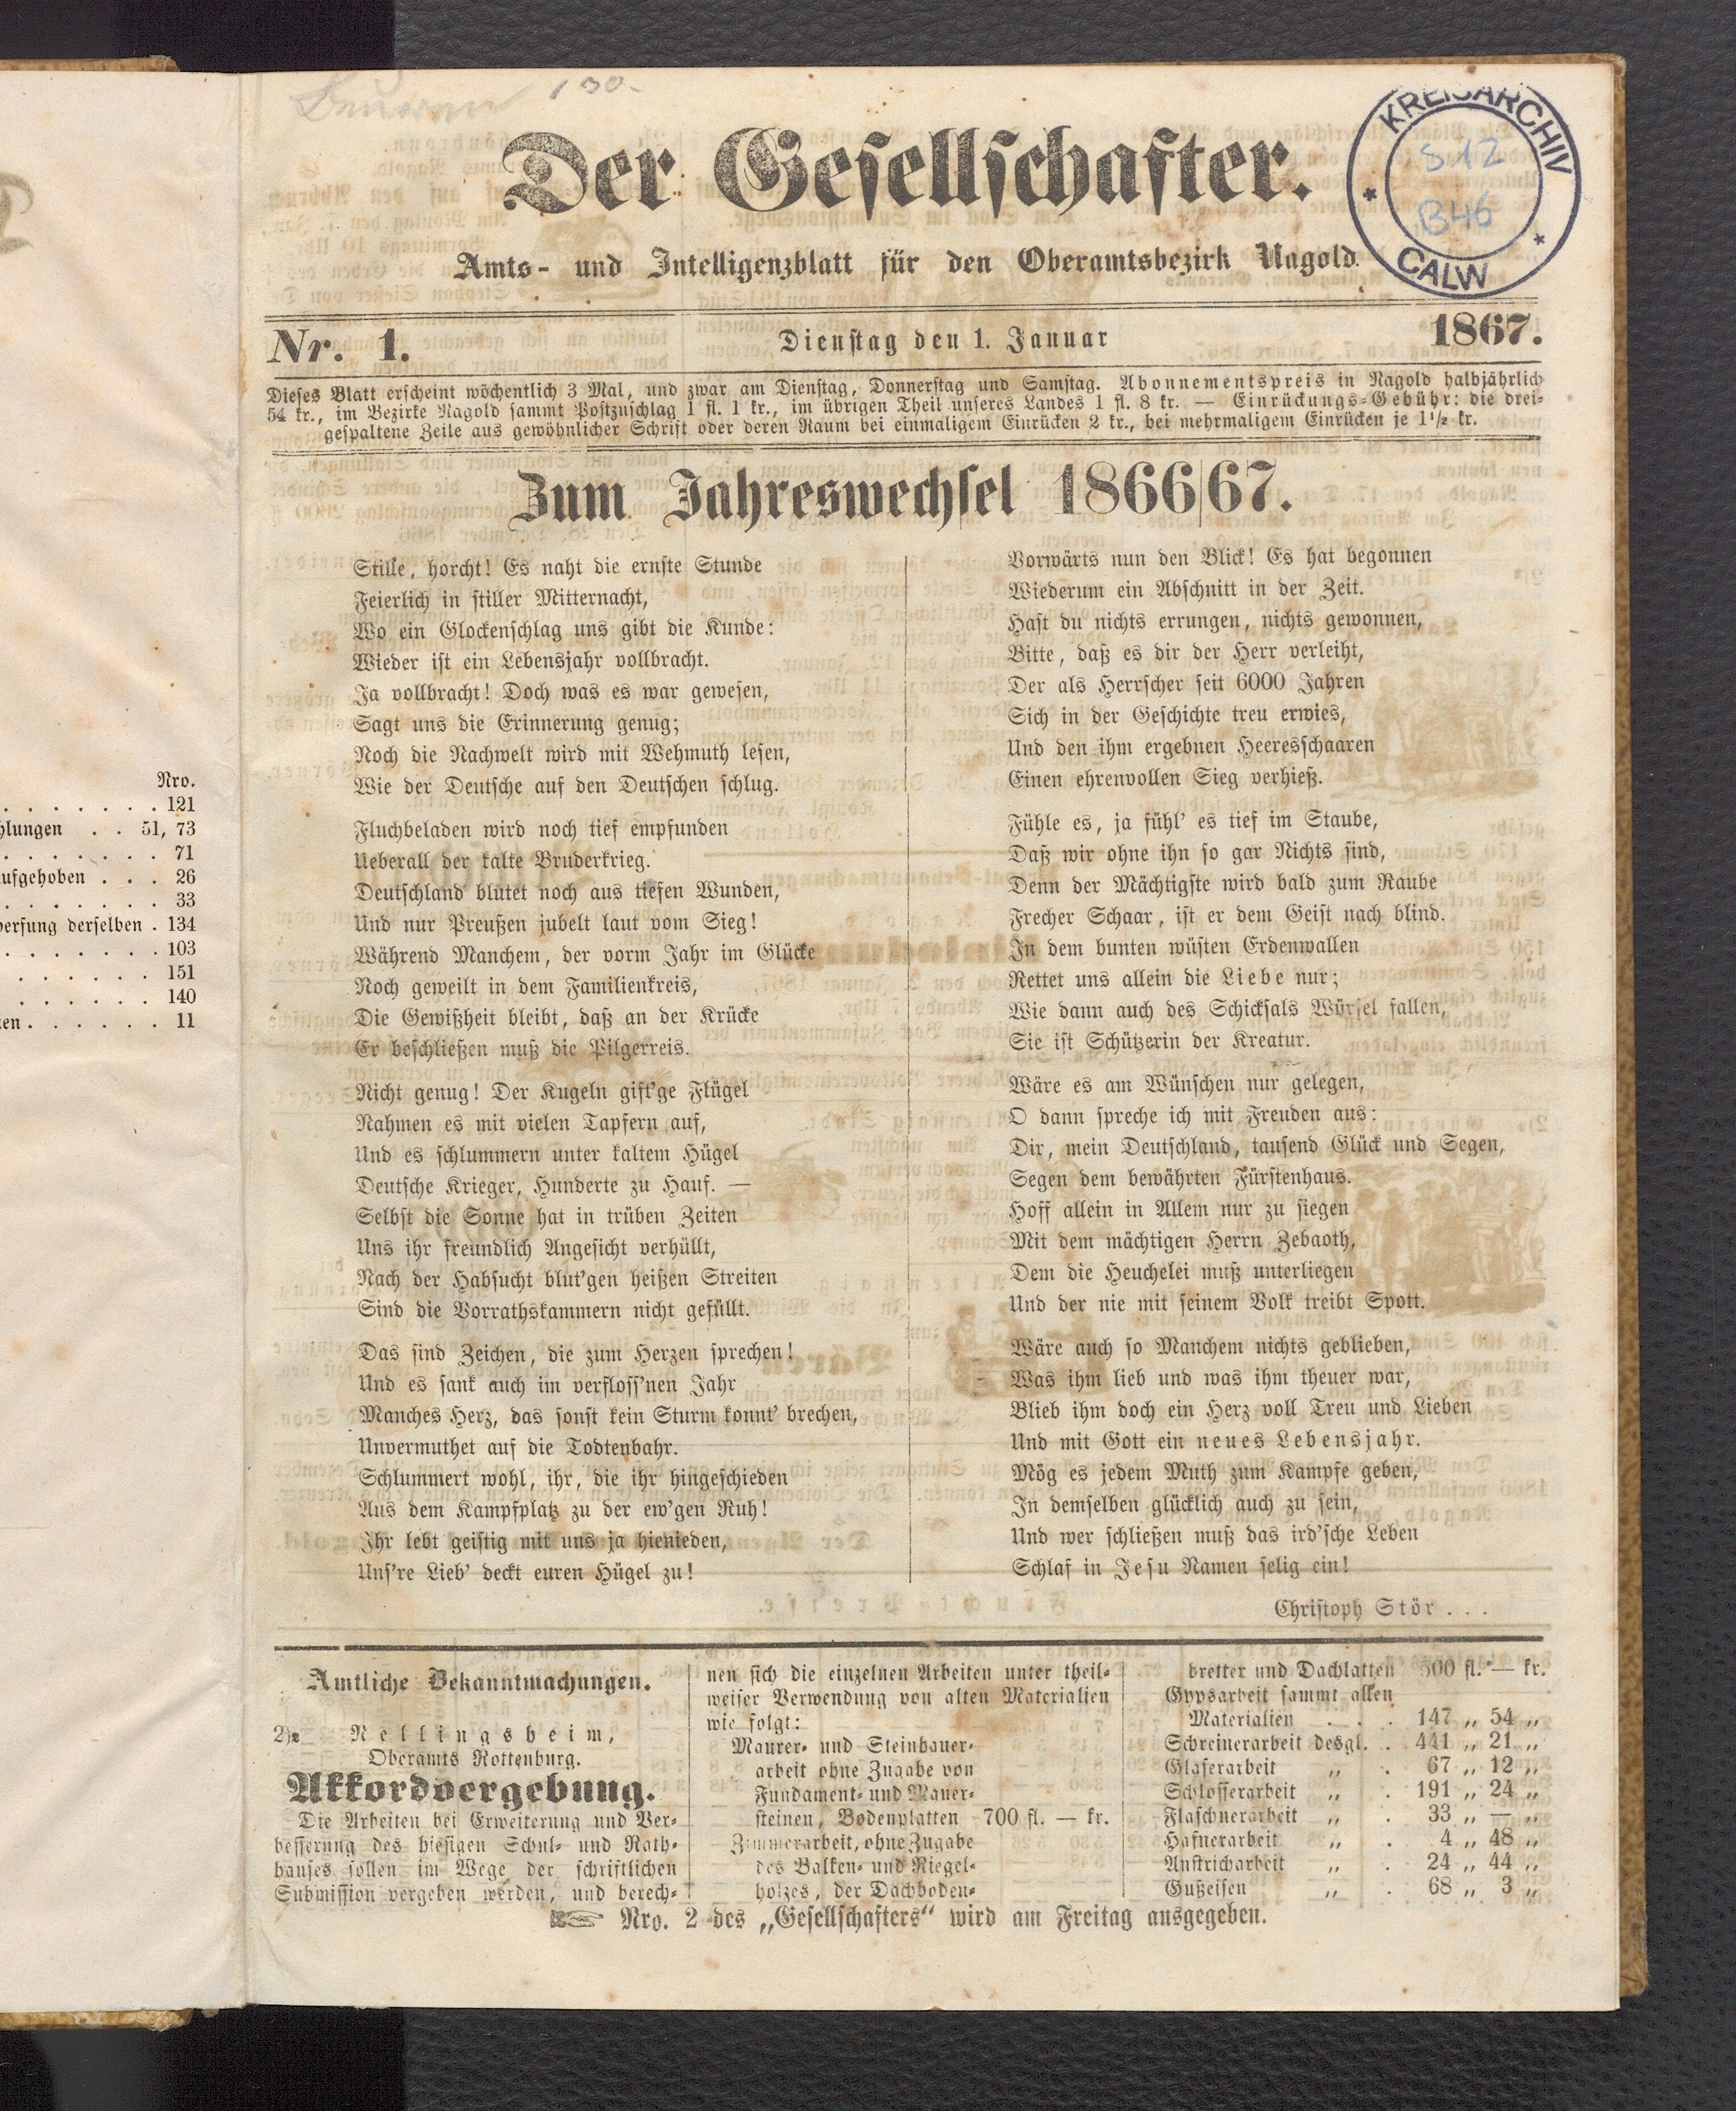 130.
Der Gesellschafter.
KREISARCHIV
S 12
B46
CALW
Amts- und Intelligenzblatt für den Oberamtsbezirk Nagold.
Nr. 1.
Dienstag den 1. Januar
1867.
Dieses Blatt erscheint wöchentlich 3 Mal, und zwar am Dienstag, Donnerstag und Samstag. Abonnementspreis in Nagold halbjährlich
54 kr., im Bezirke Nagold sammt Postzuschlag 1 fl. 1 kr., im übrigen Theil unseres Landes 1 fl. 8 kr. — Einrückungs-Gebühr: die drei-
gespaltene Zeile aus gewöhnlicher Schrift oder deren Raum bei einmaligem Einrücken 2 kr., bei mehrmaligem Einrücken je 1½ kr.
Zum Jahreswechsel 1866|67.
Stille, horcht! Es naht die ernste Stunde
Feierlich in stiller Mitternacht,
Wo ein Glockenschlag uns gibt die Kunde:
Wieder ist ein Lebensjahr vollbracht.
Ja vollbracht! Doch was es war gewesen,
Sagt uns die Erinnerung genug;
Noch die Nachwelt wird mit Wehmuth lesen,
Wie der Deutsche auf den Deutschen schlug.
Fluchbeladen wird noch tief empfunden
Ueberall der kalte Bruderkrieg.
Deutschland blutet noch aus tiefen Wunden,
Und nur Preußen jubelt laut vom Sieg!
Während Manchem, der vorm Jahr im Glücke
Noch geweilt in dem Familienkreis,
Die Gewißheit bleibt, daß an der Krücke
Er beschließen muß die Pilgerreis.
Nicht genug! Der Kugeln gift'ge Flügel
Nahmen es mit vielen Tapfern auf,
Und es schlummern unter kaltem Hügel
Deutsche Krieger, Hunderte zu Hauf. —
Selbst die Sonne hat in trüben Zeiten
Uns ihr freundlich Angesicht verhüllt,
Nach der Habsucht blut'gen heißen Streiten
Sind die Vorrathskammern nicht gefüllt.
Das sind Zeichen, die zum Herzen sprechen!
Und es sank auch im verfloss'nen Jahr
Manches Herz, das sonst kein Sturm konnt' brechen,
Unvermuthet auf die Todtenbahr.
Schlummert wohl, ihr, die ihr hingeschieden
Aus dem Kampfplatz zu der ew'gen Ruh!
Ihr lebt geistig mit uns ja hienieden,
Uns're Lieb' deckt euren Hügel zu!
Vorwärts nun den Blick! Es hat begonnen
Wiederum ein Abschnitt in der Zeit.
Hast du nichts errungen, nichts gewonnen,
Bitte, daß es dir der Herr verleiht,
Der als Herrscher seit 6000 Jahren
Sich in der Geschichte treu erwies,
Und den ihm ergebnen Heeresschaaren
Einen ehrenvollen Sieg verhieß.
Fühle es, ja fühl' es tief im Staube,
Daß wir ohne ihn so gar Nichts sind,
Denn der Mächtigste wird bald zum Raube
Frecher Schaar, ist er dem Geist nach blind.
In dem bunten wüsten Erdenwallen
Rettet uns allein die Liebe nur;
Wie dann auch des Schicksals Würfel fallen,
Sie ist Schützerin der Kreatur.
Wäre es am Wünschen nur gelegen,
O dann spreche ich mit Freuden aus:
Dir, mein Deutschland, tausend Glück und Segen,
Segen dem bewährten Fürstenhaus.
Hoff allein in Allem nur zu siegen
Mit dem mächtigen Herrn Zebaoth,
Dem die Heuchelei muß unterliegen
Und der nie mit seinem Volk treibt Spott.
Wäre auch so Manchem nichts geblieben,
Was ihm lieb und was ihm theuer war,
Blieb ihm doch ein Herz voll Treu und Lieben
Und mit Gott ein neues Lebensjahr.
Mög es jedem Muth zum Kampfe geben,
In demselben glücklich auch zu sein,
Und wer schließen muß das ird'sche Leben
Schlaf in Jesu Namen selig ein!
Christoph Stör . . .
Amtliche Bekanntmachungen.
Nellingsheim,
Oberamts Rottenburg.
Akkordvergebung.
Die Arbeiten bei Erweiterung und Ver-
besserung des hiesigen Schul- und Rath-
hauses sollen im Wege der schriftlichen
Submission vergeben werden, und berech-
nen sich die einzelnen Arbeiten unter theil-
weiser Verwendung von alten Materialien
wie folgt:
Maurer- und Steinhauer-
arbeit ohne Zugabe von
Fundament- und Mauer-
steinen, Bodenplatten 700 fl. — kr.
Zimmerarbeit, ohne Zugabe
des Balken- und Riegel-
holzes, der Dachboden-
bretter und Dachlatten 500 fl. — kr.
Gypsarbeit sammt allen
Materialien . . . 147 „ 54 „
Schreinerarbeit desgl. . 441 „ 21 „
Glaserarbeit „ . 67 „ 12 „
Schlosserarbeit „ . 191 „ 24 „
Flaschnerarbeit „ . 33 „ — „
Hafnerarbeit „ . 4 „ 48 „
Anstricharbeit „ . 24 „ 44 „
Gußeisen „ . 68 „ 3 „
☞ Nro. 2 des „Gesellschafters“ wird am Freitag ausgegeben.
Nro.
. . . . . . . 121
hlungen . . 51, 73
. . . . . . . 71
ufgehoben . . . 26
. . . . . . . 33
erfung derselben . 134
. . . . . . . 103
. . . . . . 151
. . . . . . 140
en . . . . . . 11